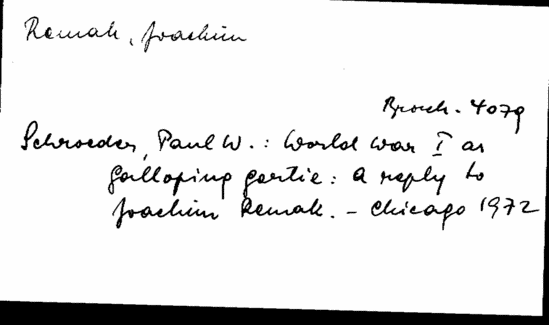 Remak, Joachim
Brosch. 4079
Schroeder, Paul W. : World War I as
galloping gertie : a reply to
Joachim Remak. - Chicago 1972